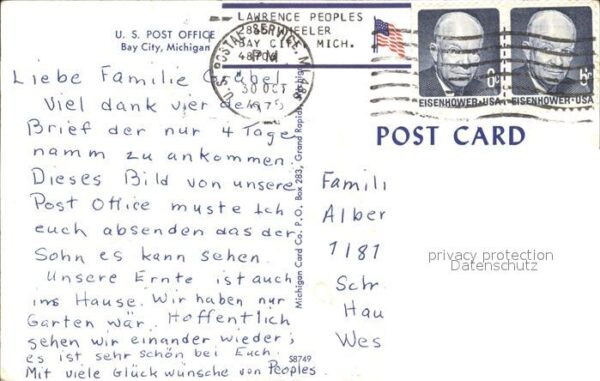 U. S. POST OFFICE
Bay City, Michigan
LAWRENCE PEOPLES
WHEELER
BAY CITY, MICH.
U.S. POSTAL SERVICE, MI
PM
30 OCT
EISENHOWER·USA
6¢
EISENHOWER·USA
6¢
POST CARD
Liebe Familie
Viel dank vier den
Brief der nur 4 Tage
namm zu ankommen.
Dieses Bild von unsere
Post Office muste Ich
euch absenden das der
Sohn es kann sehen.
Unsere Ernte ist auch
ins Hause. Wir haben nur
Garten wär. Hoffentlich
sehen wir einander wieder;
es ist sehr schön bei Euch.
Mit viele Glück wünsche von Peoples
S8749
Michigan Card Co. P. O. Box 283, Grand Rapids, Michigan
Famili
Alber
1181
Schr
Hau
Wes
privacy protection
Datenschutz